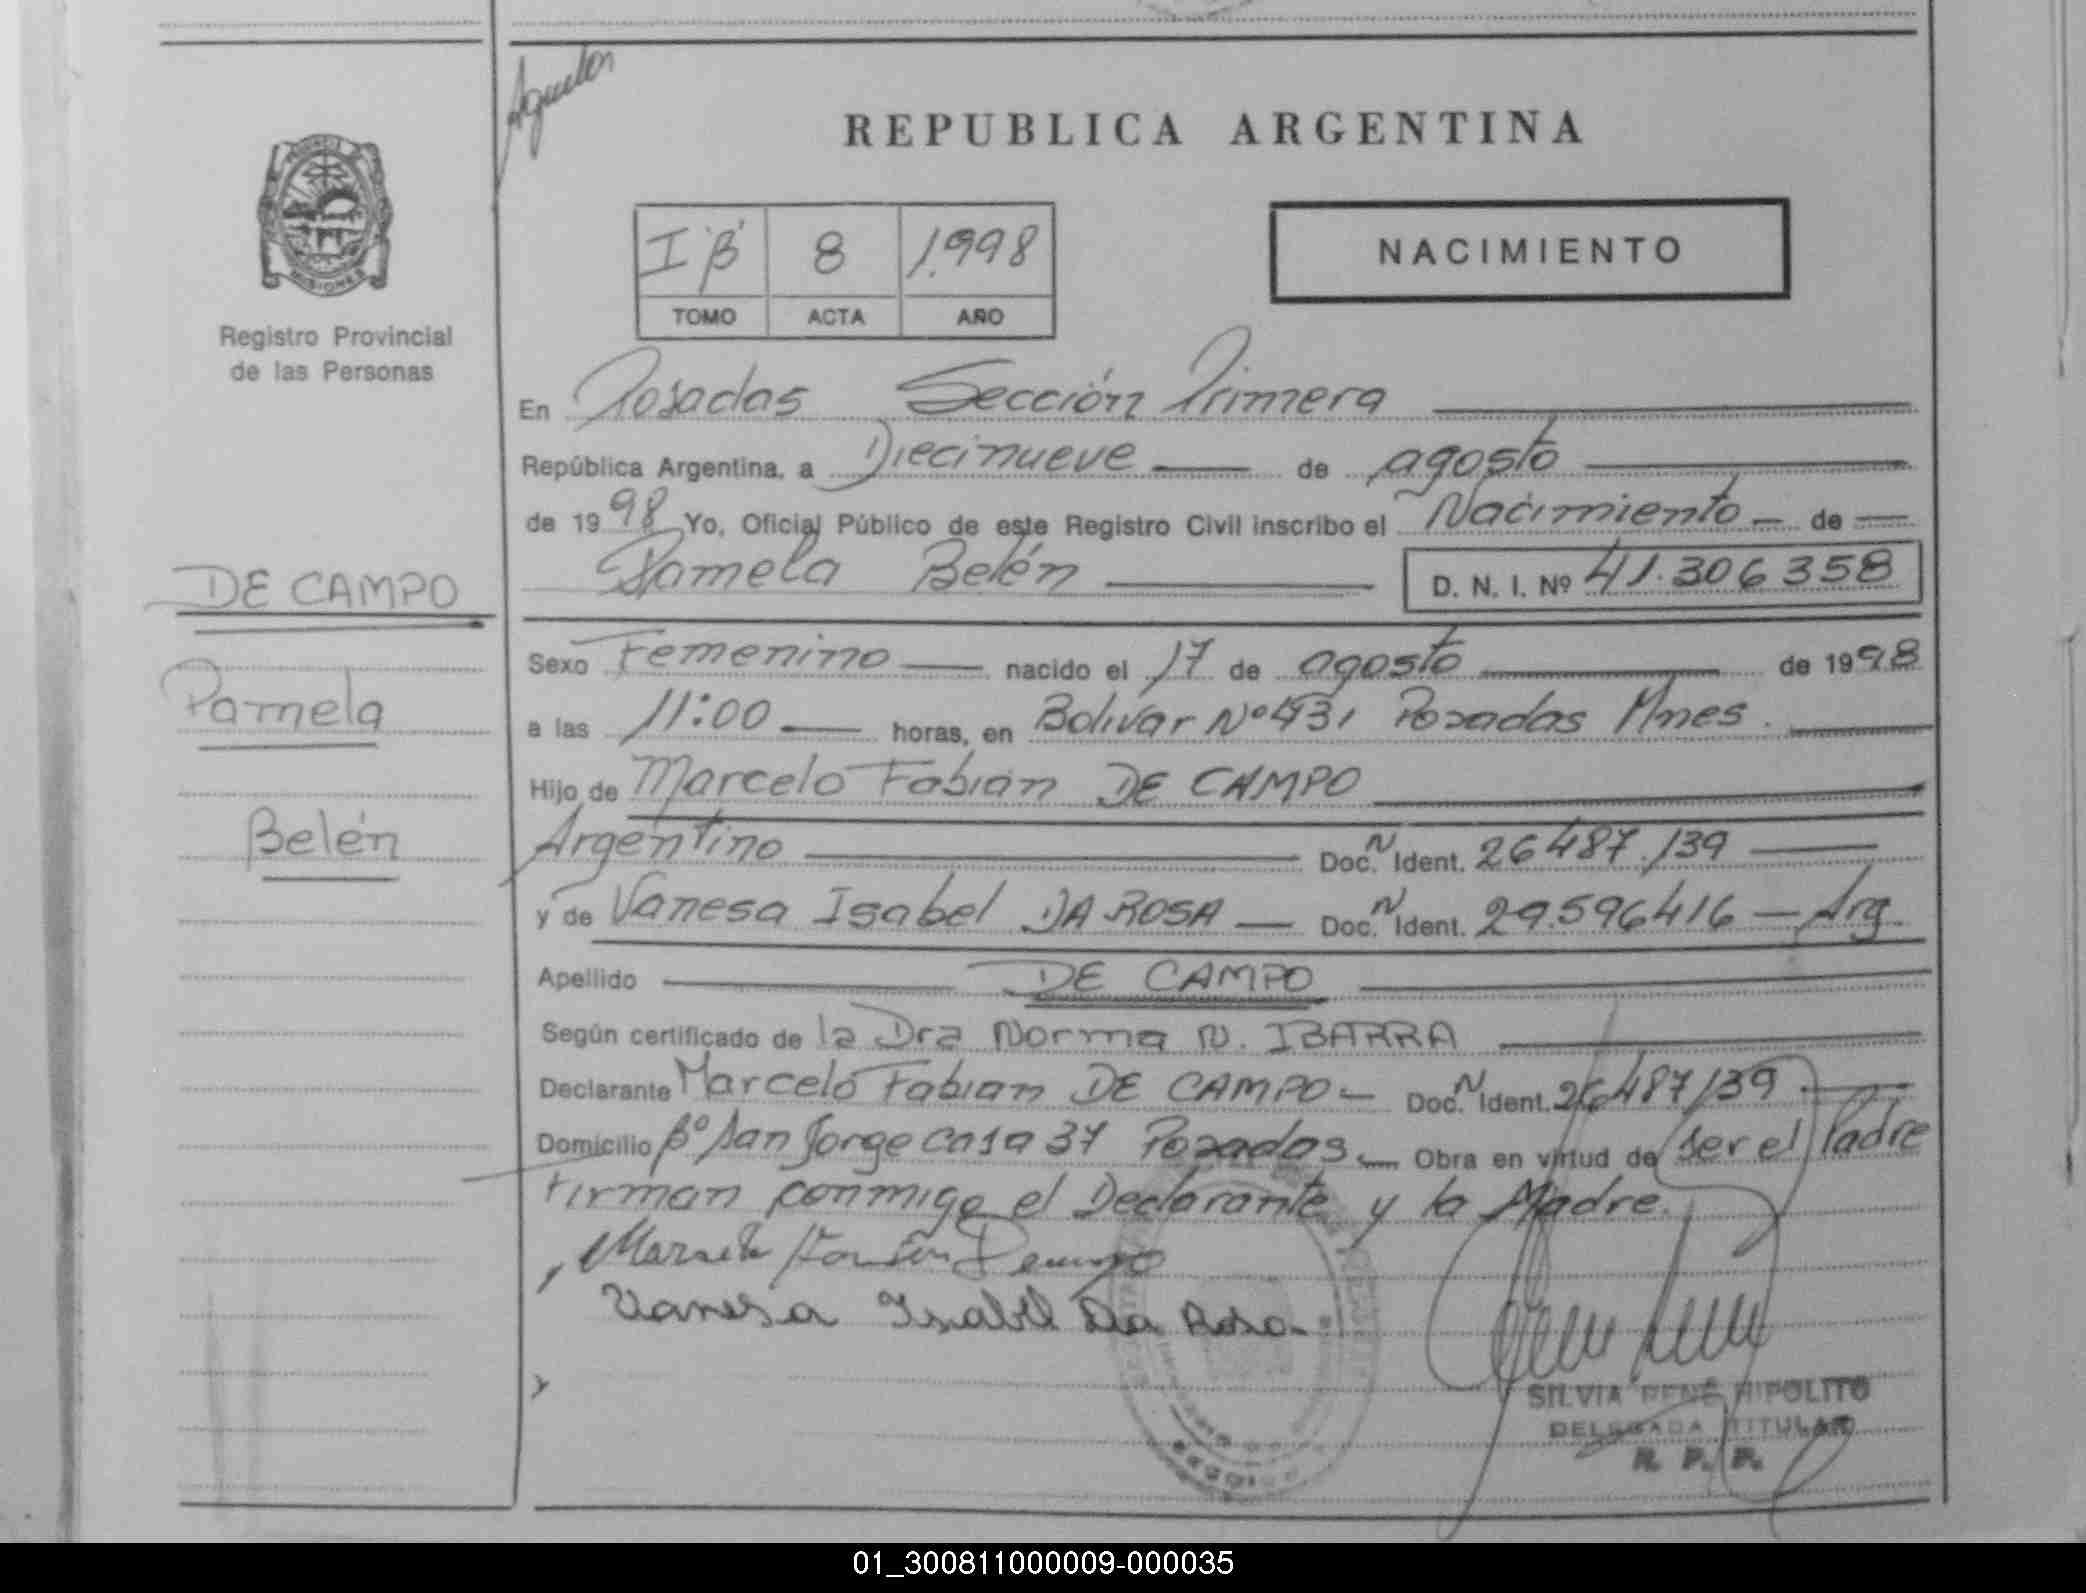 REPUBLICA ARGENTINA
PROVINCIA
MISIONES
Registro Provincial
de las Personas
I "B" 8 1.998
TOMO ACTA AÑO
NACIMIENTO
DE CAMPO
Pamela
Belén
En Posadas Sección Primera
República Argentina, a Diecinueve de agosto
de 1998 Yo, Oficial Público de este Registro Civil inscribo el Nacimiento de
Pamela Belén D. N. I. Nº 41.306358
Sexo Femenino nacido el 17 de agosto de 1998
a las 11:00 horas, en Bolivar Nº 431 Posadas Mnes.
Hijo de Marcelo Fabián DE CAMPO
Argentino Doc. N Ident. 26487.139
y de Vanesa Isabel DA ROSA Doc. N Ident. 29.596416 - Arg.
Apellido DE CAMPO
Según certificado de la Dra Norma N. IBARRA
Declarante Marcelo Fabian DE CAMPO - Doc. N Ident. 26487139
Domicilio Bº San Jorge casa 37 Posadas. Obra en virtud de ser el Padre
Firman conmigo el Declarante y la Madre.
Vanesa Isabel Da Rosa
SILVIA RENÉ HIPOLITO
DELEGADA TITULAR
R. P. P.
01_300811000009-000035